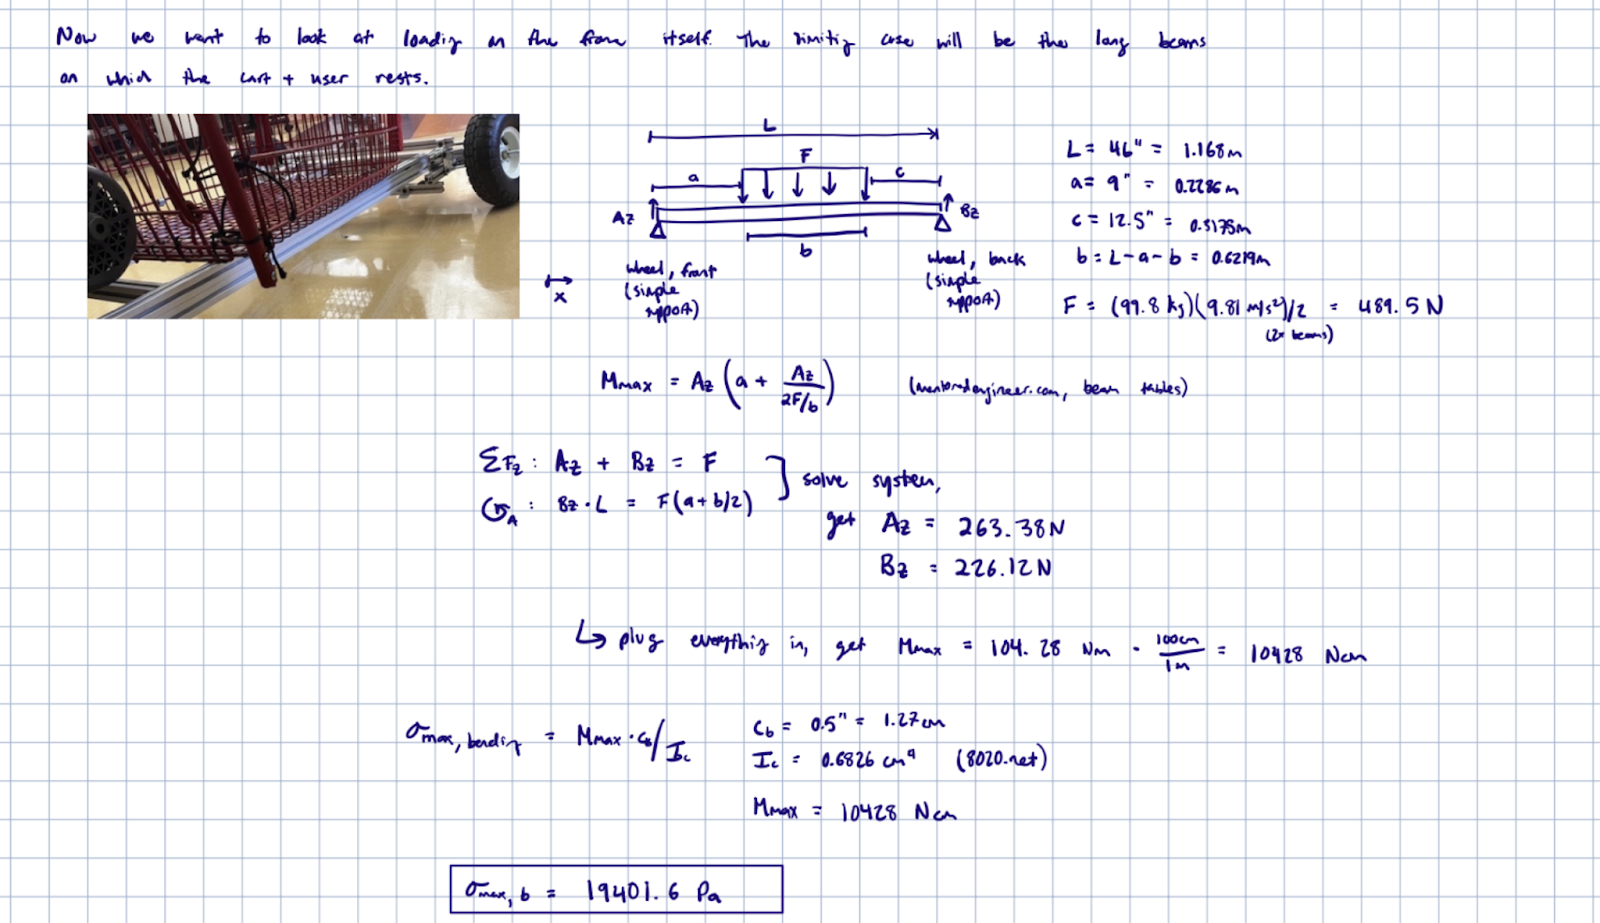 Now we want to look at loading on the frame itself. The limiting case will be the long beams
on which the cart + user rests.
L
F
a
c
Az
Bz
b
x
wheel, front
(simple
support)
wheel, back
(simple
support)
L = 46" = 1.168m
a = 9" = 0.2286m
c = 12.5" = 0.3175m
b = L-a-b = 0.6219m
F = (99.8 kg)(9.81 m/s²)/2 = 489.5 N
(2x beams)
Mmax = Az (a + Az / 2F/b) (mentoredengineer.com, beam tables)
ΣFz : Az + Bz = F
A : Bz · L = F(a+b/2)
solve system,
get Az = 263.38N
Bz = 226.12N
↳ plug everything in, get Mmax = 104.28 Nm · 100cm / 1m = 10428 Ncm
σmax, bending = Mmax · cb / Ic
cb = 0.5" = 1.27cm
Ic = 0.6826 cm⁴ (8020.net)
Mmax = 10428 Ncm
σmax, b = 19401.6 Pa